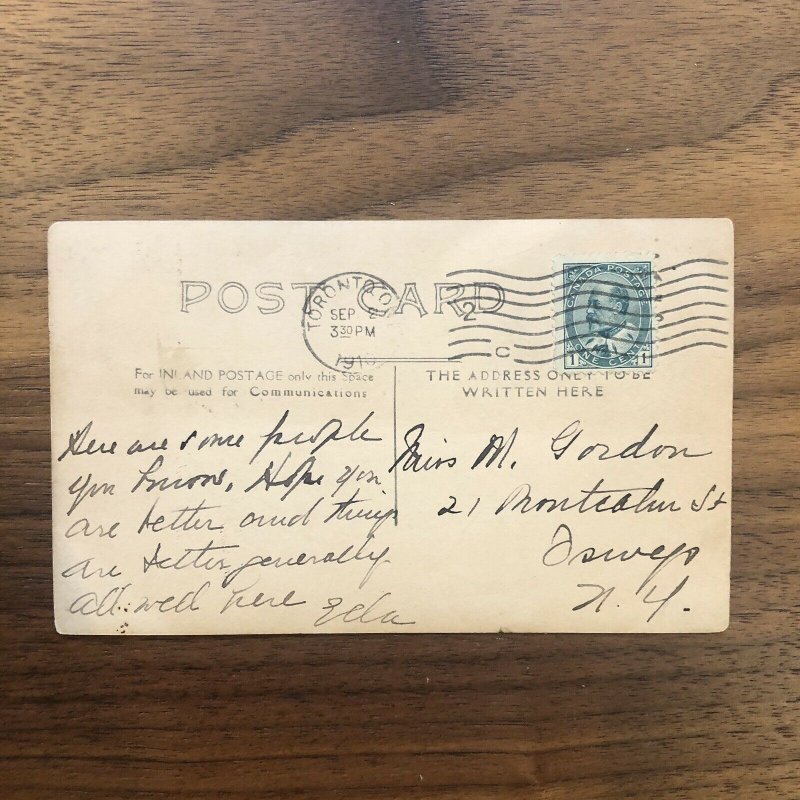 POST CARD
TORONTO, ON
SEP 2
3 30 PM
1910
2
C
CANADA POSTAGE
1 ONE CENT 1
For INLAND POSTAGE only this Space
may be used for Communications
THE ADDRESS ONLY TO BE
WRITTEN HERE
Here are some people
you know. Hope you
are better and things
are better generally.
All well here
Eda
Miss M. Gordon
21 Montcalm St
Oswego
N.Y.